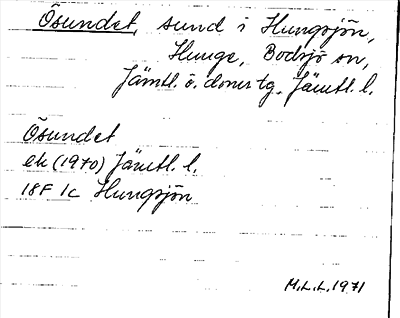 Ösundet, sund i Hungsjön,
Hunge, Bodsjö sn,
Jämtl. ö. domstg, Jämtl. l.
Ösundet
ek (1970) Jämtl. l.
18F 1c Hungsjön
M.L.L. 1971